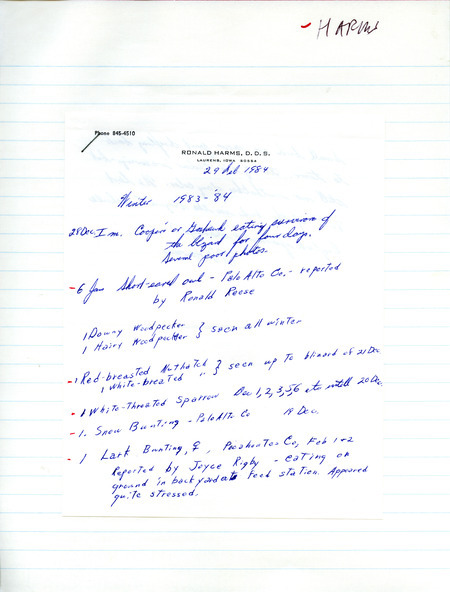 - HARMS
Phone 845-4510
RONALD HARMS, D.D.S.
LAURENS, IOWA 50554
29 Feb 1984
Winter 1983-'84
28 Dec I m. Cooper's or Goshawk eating survivors of
the blizard for four days.
Several poor photos.
- 6 Jan Short-eared owl - Palo Alto Co. - reported
by Ronald Reese
1 Downy Woodpecker } seen all winter
1 Hairy Woodpecker
- 1 Red-breasted Nuthatch } seen up to blizard of 21 Dec
1 White-breated " }
- 1 White-Throated Sparrow Dec 1,2,3,5,6 etc untill 20 Dec
- 1. Snow Bunting - Palo Alto Co 19 Dec.
- 1 Lark Bunting, ♀, Pocahontas Co, Feb 1-2
Reported by Joyce Rigby - eating on
ground in back yard at feed station. Appeared
quite stressed.